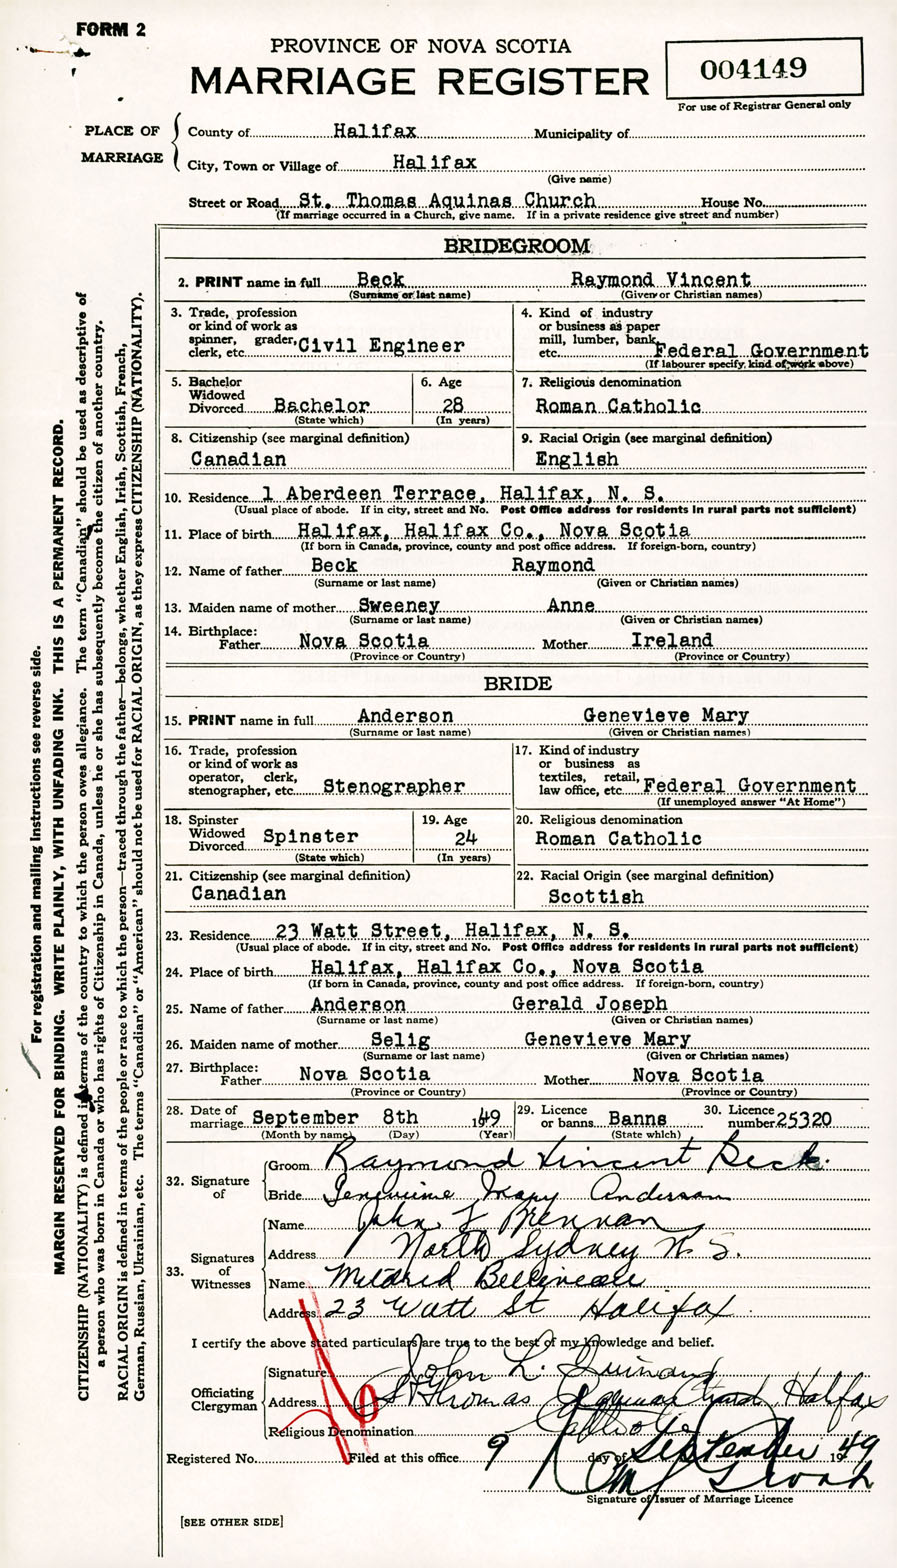 FORM 2
PROVINCE OF NOVA SCOTIA
MARRIAGE REGISTER
004149
For use of Registrar General only
PLACE OF MARRIAGE
County of Halifax Municipality of
City, Town or Village of Halifax
(Give name)
Street or Road St. Thomas Aquinas Church House No.
(If marriage occurred in a Church, give name. If in a private residence give street and number)
BRIDEGROOM
2. PRINT name in full Beck Raymond Vincent
(Surname or last name) (Given or Christian names)
3. Trade, profession or kind of work as spinner, grader, clerk, etc. Civil Engineer
4. Kind of industry or business as paper mill, lumber, bank, etc. Federal Government
(If labourer specify kind of work above)
5. Bachelor Widowed Divorced Bachelor
(State which)
6. Age 28
(In years)
7. Religious denomination
Roman Catholic
8. Citizenship (see marginal definition)
Canadian
9. Racial Origin (see marginal definition)
English
10. Residence 1 Aberdeen Terrace, Halifax, N. S.
(Usual place of abode. If in city, street and No. Post Office address for residents in rural parts not sufficient)
11. Place of birth Halifax, Halifax Co., Nova Scotia
(If born in Canada, province, county and post office address. If foreign-born, country)
12. Name of father Beck Raymond
(Surname or last name) (Given or Christian names)
13. Maiden name of mother Sweeney Anne
(Surname or last name) (Given or Christian names)
14. Birthplace:
Father Nova Scotia Mother Ireland
(Province or Country) (Province or Country)
BRIDE
15. PRINT name in full Anderson Genevieve Mary
(Surname or last name) (Given or Christian names)
16. Trade, profession or kind of work as operator, clerk, stenographer, etc. Stenographer
17. Kind of industry or business as textiles, retail, law office, etc. Federal Government
(If unemployed answer "At Home")
18. Spinster Widowed Divorced Spinster
(State which)
19. Age 24
(In years)
20. Religious denomination
Roman Catholic
21. Citizenship (see marginal definition)
Canadian
22. Racial Origin (see marginal definition)
Scottish
23. Residence 23 Watt Street, Halifax, N. S.
(Usual place of abode. If in city, street and No. Post Office address for residents in rural parts not sufficient)
24. Place of birth Halifax, Halifax Co., Nova Scotia
(If born in Canada, province, county and post office address. If foreign-born, country)
25. Name of father Anderson Gerald Joseph
(Surname or last name) (Given or Christian names)
26. Maiden name of mother Selig Genevieve Mary
(Surname or last name) (Given or Christian names)
27. Birthplace:
Father Nova Scotia Mother Nova Scotia
(Province or Country) (Province or Country)
28. Date of marriage September 8th 1949
(Month by name) (Day) (Year)
29. Licence or banns Banns
(State which)
30. Licence number 25320
32. Signature of
Groom Raymond Vincent Beck
Bride Genevieve Mary Anderson
33. Signatures of Witnesses
Name John F Brennan
Address North Sydney N. S.
Name Mildred
Address 23 Watt St Halifax
I certify the above stated particulars are true to the best of my knowledge and belief.
Officiating Clergyman
Signature John L.
Address St Thomas Aquinas Halifax
Religious Denomination Catholic
Registered No. Filed at this office 9 day of September 1949
Signature of Issuer of Marriage Licence
[SEE OTHER SIDE]
For registration and mailing instructions see reverse side.
MARGIN RESERVED FOR BINDING. WRITE PLAINLY, WITH UNFADING INK. THIS IS A PERMANENT RECORD.
CITIZENSHIP (NATIONALITY) is defined in terms of the country to which the person owes allegiance. The term "Canadian" should be used as descriptive of
a person who was born in Canada or who has rights of Citizenship in Canada, unless he or she has subsequently become the citizen of another country.
RACIAL ORIGIN is defined in terms of the people or race to which the person—traced through the father—belongs, whether English, Irish, Scottish, French,
German, Russian, Ukrainian, etc. The terms "Canadian" or "American" should not be used for RACIAL ORIGIN, as they express CITIZENSHIP (NATIONALITY).